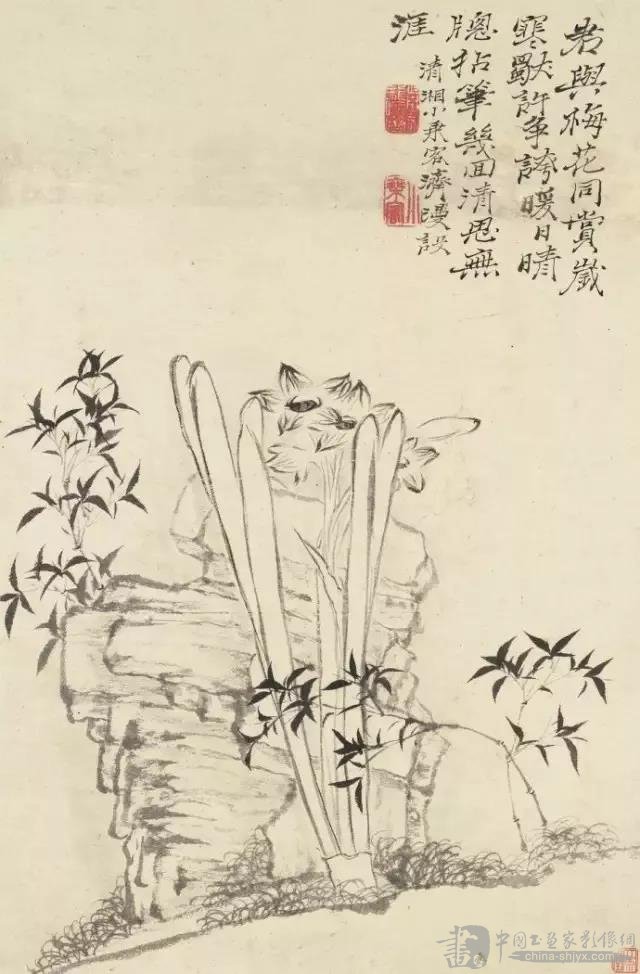 君與梅花同賞歲
寒獨許爭誇暖日晴
牕拈筆幾回清思無
涯
清湘小乘客濟漫設
小乘客
畫
中国书画家影像網
www.china-shjyx.com